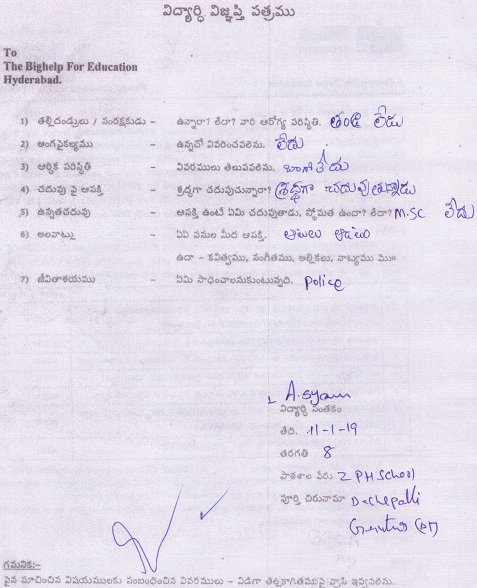 విద్యార్ధి విజ్ఞప్తి పత్రము
To
The Bighelp For Education
Hyderabad.
1) తల్లిదండ్రులు / సంరక్షకుడు – ఉన్నారా? లేదా? వారి ఆరోగ్య పరిస్థితి. తండ్రి లేడు
2) అంగవైకల్యము – ఉన్నచో వివరించవలెను. లేదు
3) ఆర్థిక పరిస్థితి – వివరములు తెలుపవలెను. బాగా లేదు
4) చదువు పై ఆసక్తి – శ్రద్ధగా చదువుచున్నారా? శ్రద్ధగా చదువుతున్నాడు
5) ఉన్నతచదువు – ఆసక్తి ఉంటే ఏమి చదువుతాడు, స్తోమత ఉందా? లేదా? M.SC లేదు
6) అలవాట్లు – ఏఏ పనుల మీద ఆసక్తి. ఆటలు ఆడటం
ఉదా – కవిత్వము, సంగీతము, అల్లికలు, నాట్యము ము॥
7) జీవితాశయము – ఏమి సాధించాలనుకుంటున్నది. police
A. syam
విద్యార్ధి సంతకం
తేది. 11-1-19
తరగతి 8
పాఠశాల పేరు Z PH School
పూర్తి చిరునామా
గమనిక:-
పైన సూచించిన విషయములకు సంబంధించిన వివరములు – విడిగా తెల్లకాగితముపై వ్రాసి ఇవ్వవలెను.